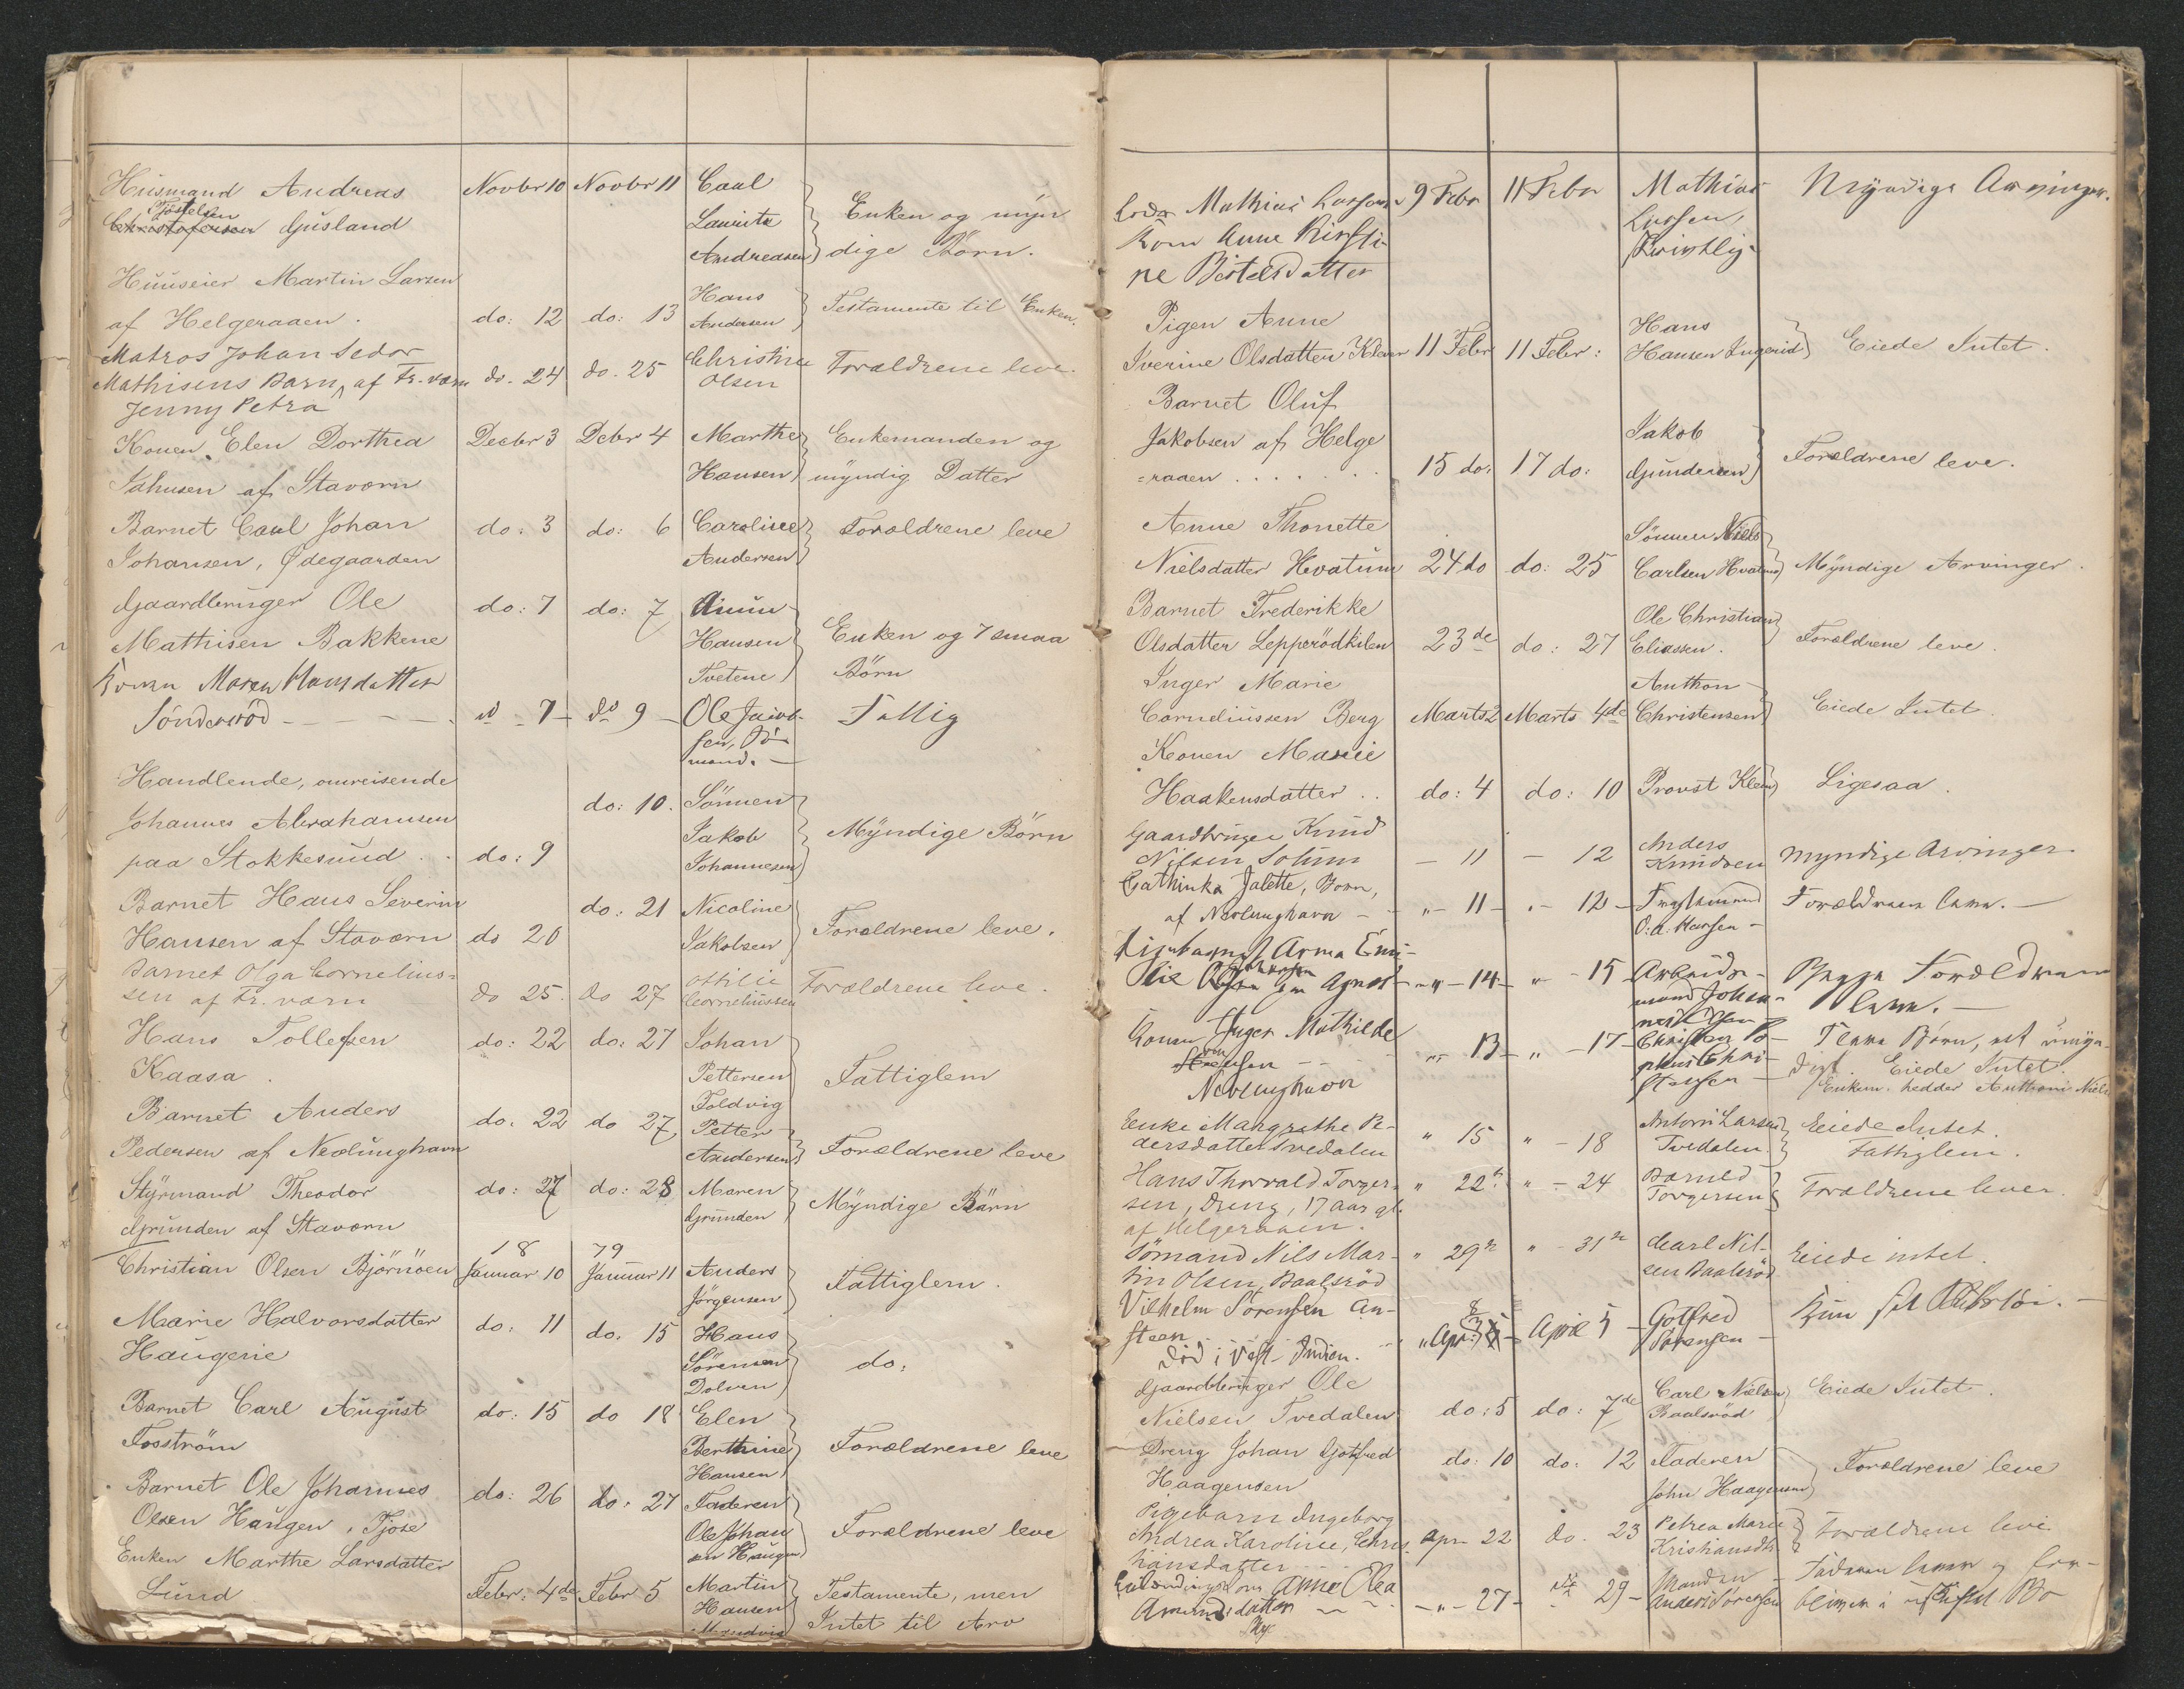 Husmand Andreas Novbr 10 Novbr 11 Carl
Tostelsen
Christofersen Gusland Laurits Enken og myn
Andreasen dige Børn.
Huuseier Martin Larsen
af Helgeraaen. do: 12 do: 13 Hans Andersen Testamente til Enken.
Matros Johan Sedor
Mathisens Barn, af Fr. værn do. 24 do. 25 Christine Olsen Forældrene leve.
Jenny Petra
Konen Elen Dorthea Decbr 3 Dcbr 4 Marthe Enkemanden og
Jahnsen af Staværn Hansen myndig Datter
Barnet Carl Johan do: 3 do: 6 Caroline Forældrene leve
Johansen, Ødegaarden Andersen
Gaardbruger Ole do: 7 do: 7
Mathisen Bakkene Hansen Enken og 7 smaa
Tvetene Børn
Konen Maren Hansdatter
Sønderød do 7 do 9 Ole Jacob-
sen, Sø
mand.
Handlende, omreisende
Johannes Abrahamsen do: 10. Sønnen
paa Stokkesund do: 9 Jakob Myndige Børn
Johannesen
Barnet Hans Severin do: 21 Nicoline
Hansen af Staværn do 20 Jakobsen Forældrene leve.
Barnet Olga Cornelius=
sen af Fr. værn do 25. do 27 Ottilie Corneliussen Forældrene leve.
Hans Tollefsen do: 22 do: 27 Johan
Kaasa. Pettersen Fattiglem
Foldvig
Barnet Anders do: 22 do 27 Petter
Pedersen af Nevlunghavn Andersen Forældrene leve
Styrmand Theodor do: 27 do: 28 Maren Myndige Børn
Grunden af Staværn Grunden
18 79
Christian Olsen Bjørnøen Januar 10 Januar 11 Anders
Jørgensen Fattiglem.
Marie Halvorsdatter do: 11 do. 15 Hans
Haugerie Sørensen do:
Dolven
Barnet Carl August do: 15 do 18 Elen
Fosstrøm Berthine Forældrene leve
Hansen
Barnet Ole Johannes do: 26 do: 27 Faderen
Olsen Haugen, Tjose Ole Johan Forældrene leve
sen Haugen
Enken Marthe Larsdatter
Lund Febr: 4de Febr 5 Martin Testamente, men
Hansen Intet til Arv
Mathias Larsens 9 Febr 11 Febr Mathias Myndige Arvinger.
Kone Anne Kirsti- Larsen,
ne Bertelsdatter
Pigen Anne
Iverine Olsdatter Klever 11 Febr 11 Febr: Hans Hansen Eiede Intet.
Barnet Oluf
Jakobsen af Helge Jakob
=raaen 15 do: 17 do: Gundersen Forældrene leve.
Anne Thonette
Nielsdatter Hvatum 24 do do: 25 Sønnen Niels Carlsen Hvatum Myndige Arvinger.
Barnet Frederikke
Olsdatter Lepperødkilen 23de do: 27 Ole Christian Eliassen. Forældrene leve.
Inger Marie
Corneliussen Berg Marts 2 Marts 4de Anthon Christensen Eiede Intet.
Konen Marie
Haakensdatter.. do: 4 do: 10 Provst Klem Ligesaa.
Gaardbruger Knud
Nilsen Solum – 11 – 12 Anders Knudsen myndige Arvinger.
Cathinka Jalette, Barn,
af Nevlunghavn - 11 - 12 Forældrene leve.
O. A. Hansen
Pigebarnet Anna Emi-
lie – 14 – 15 Arbeids- Begge Forældrene
mand Johan- leve.
Konen Inger Mathilde
13 – 17 Christen
Nevlunghavn
Eiede Intet.
Enkem. hedder Anthoni Niels
Enke Margrethe Pe-
dersdatter Tvedalen " 15 " - 18 Antoni Larsen Tvedalen. Eiede Intet. Fattiglem.
Hans Thorvald Torger-
sen, Dreng, 17 aar gl. " 22 " - 24 Torgersen Forældrene lever.
af Helgeraaen.
Sømand Nils Mar-
tin Olsen, Baalsrød " 29 " - 31 Carl Nil-
sen Baalsrød Eiede intet.
Vilhelm Sørensen An-
steen April 5 Gotfred Sørensen
død i Vest-Indien.
Gaardbruger Ole
Nielsen Tvedalen do: 5 do: 7de Carl Nielsen Baalsrød Eiede Intet.
Dreng Johan Gotfred do: 10 do: 12 Faderen
Haagensen John Haagensen Forældrene leve
Pigebarn Ingeborg
Andrea Karoline, Chris- Apr. 22 do. 23 Petrea Marie Kristiansdtr Forældrene leve.
tiansdatter
Anne Olea
Amundsdatter – 27 29 Manden
Anders Sørensen